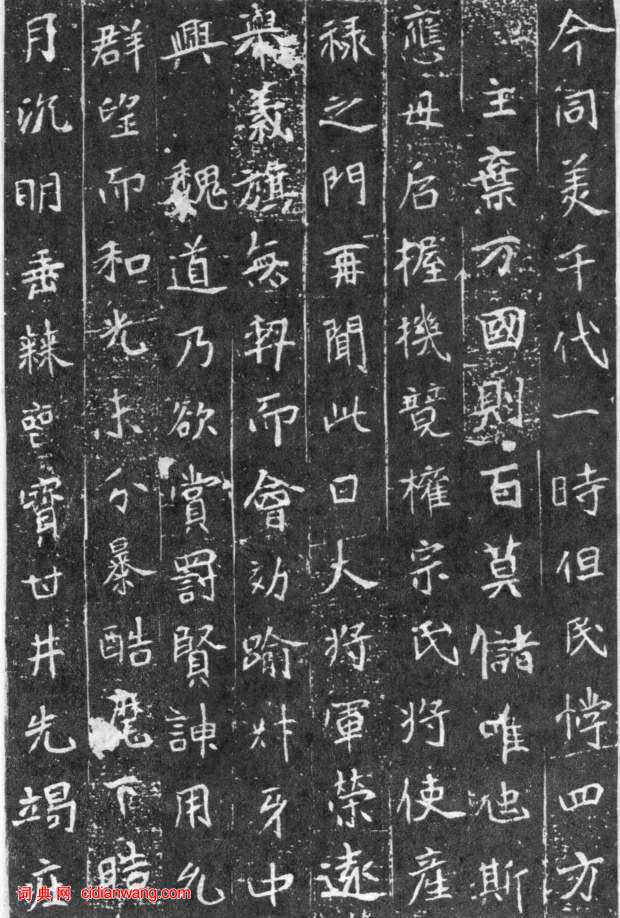 今同美千代一時但民悖四方
主棄万國則百莫儲唯虵斯
應母后握機競權宗氏將使產
祿之門再聞此日大將軍榮遠
舉義旗無契而會効踰叶牙中
興魏道乃欲賞罸賢用允
群望而和光未分暴酷麾下時
月沉明垂棘喪寶甘井先竭
词典网 cidianwang.com